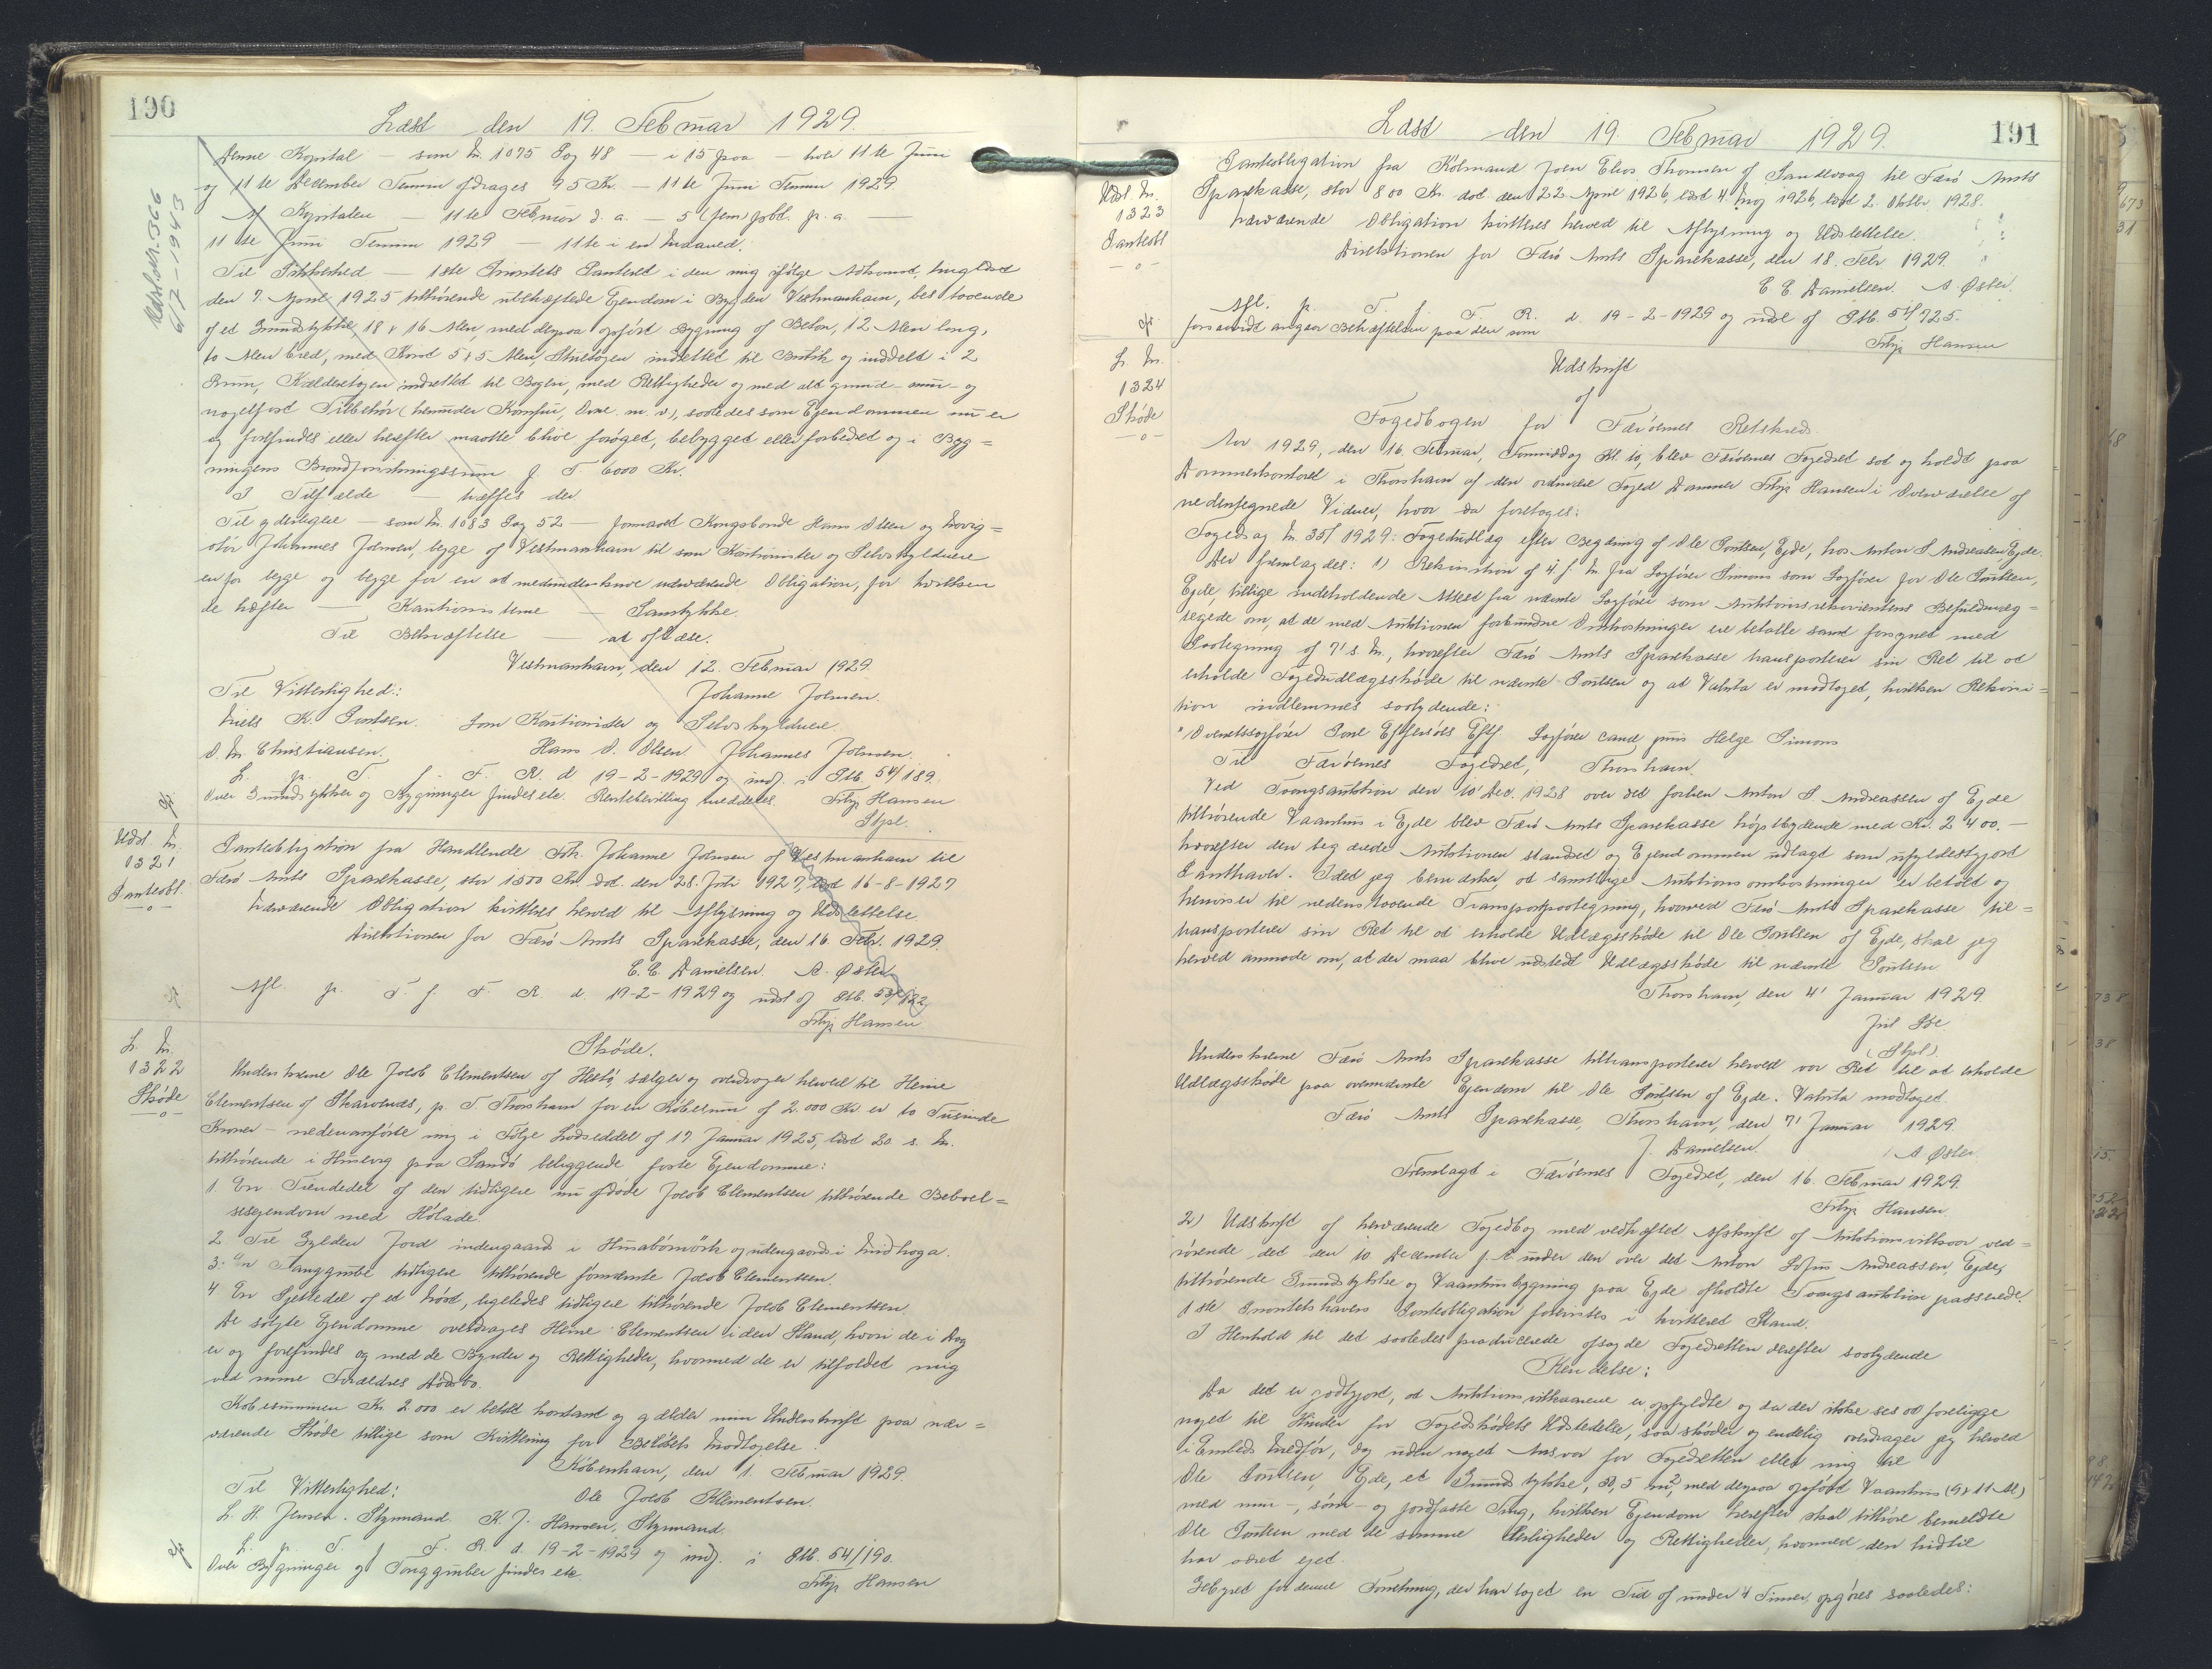 190
Læst den 19. Februar 1929.
Udsl. Nr. 366
6/7-1943
Denne Kapital — som Nr. 1075 Pag 48 — i 15 paa — hver 11te Juni
og 11te December Termin afdrages 95 Kr. — 11te Juni Termin 1929
Af Kapitalen — 11te Februar d. a. — 5 (fem) pCt. p. a. —
11te Juni Termin 1929 — 11te i en Maaned.
Til Sikkerhed — 1ste Prioritets Panteret i den mig ifølge Adkomst, tinglæst
den 7. April 1925 tilhørende ubehæftede Ejendom i Bygden Vestmanhavn, bestaaende
af et Grundstykke, 18 x 16 Alen, med derpaa opført Bygning af Beton, 12 Alen lang,
10 Alen bred, med Kvist 5 x 5 Alen, Stueetagen indrettet til Butik og inddelt i 2
Rum, Kælderetagen indrettet til Bageri, med Rettigheder og med alt grund- mur- og
nagelfast Tilbehør (herunder Komfur, Ovne m. v.), saaledes som Ejendommen nu er
og forefindes eller herefter maatte blive forøget, bebygget eller forbedret og i Byg=
ningens Brandforsikringssum p. T. 6000 Kr.
I Tilfælde — træffes der.
Til yderligere — som Nr. 1083 Pag 52 — formaaet Kongsbonde Hans Olsen og Navig=
atør Johannes Joensen, begge af Vestmanhavn til som Kautionister og Selvskyldnere
en for begge og begge for en at medunderskrive nærværende Obligation, for hvilken
de hæfter — Kautionisterne — Samtykke.
Til Bekræftelse — at aflæse.
Vestmanhavn, den 12. Februar 1929.
Til Vitterlighed: Johanne Joensen.
Niels K. Poulsen. Som Kautionister og Selvskyldnere
O. M. Christiansen. Hans D. Olsen Johannes Joensen.
L. p. T. f. F. R. d. 19-2-1929 og indf. i Ptb. 54/189.
Over Grundstykker og Bygninger findes etc. Rentebevilling meddeles. Filip Hansen
Stpl.
Udsl. Nr.
1321
Panteobl.
—o—
Panteobligation fra Handlende Frk. Johanne Joensen af Vestmanhavn til
Færø Amts Sparekasse, stor 1500 Kr. dat. den 28. Juli 1927, læst 16-8-1927
Nærværende Obligation kvitteres herved til Aflysning og Udslettelse.
Direktionen for Færø Amts Sparekasse, den 16. Febr. 1929.
C. C. Danielsen. A. Øster
Afl. p. T. f. F. R. d. 19-2-1929 og udsl. af Ptb. 53/182
Filip Hansen
L. Nr.
1322
Skøde
—o—
Skøde.
Underskrevne Ole Jacob Clementsen af Hestø, sælger og overdrager herved til Heine
Clementsen af Skarvenæs, p. T. Thorshavn for en Købesum af 2.000 Kr. er to Tusinde
Kroner — nedenanførte mig i Følge Lodseddel af 17 Januar 1925, læst 20. s. M.
tilhørende i Husevig paa Sandø beliggende faste Ejendomme:
1. En Tiendedel af den tidligere nu afdøde Jacob Clementsen tilhørende Beboel=
sesejendom med Hølade.
2. Tre Gylden Jord indengaards i Husabømørk og udengaards i Midhaga.
3. En Tanggrube tidligere tilhørende førnævnte Jacob Clementsen.
4. En Sjettedel af et Nøst, ligeledes tidligere tilhørende Jacob Clementsen.
De solgte Ejendomme overdrages Heine Clementsen i den Stand, hvori de i Dag
er og forefindes og med de Byrder og Rettigheder, hvormed de er tilfaldet mig
ved mine Forældres Dødsbo.
Købesummen Kr. 2.000 er betalt kontant og gælder min Underskrift paa nær=
værende Skøde tillige som Kvittering for Beløbets Modtagelse.
København, den 1. Februar 1929.
Til Vitterlighed: Ole Jacob Klementsen.
L. H. Jensen. Styrmand. K. J. Hansen, Styrmand.
L. p. T. f. F. R. d. 19-2-1929 og indf. i Ptb. 54/190.
Over Bygninger og Tanggruber findes etc. Filip Hansen
191
Læst den 19. Februar 1929.
Udsl. Nr.
1323
Panteobl
—o—
Panteobligation fra Købmand Joen Elias Thomsen af Sandevaag til Færø Amts
Sparekasse, stor 800 Kr. dat. den 22. April 1926, læst 4. Maj 1926, læst 2. Oktbr. 1928.
Nærværende Obligation kvitteres herved til Aflysning og Udslettelse.
Direktionen for Færø Amts Sparekasse, den 18. Febr. 1929.
C. C. Danielsen. A. Øster.
Afl. p. T. f. F. R. d. 19-2-1929 og udsl. af Ptb. 54/725.
forsaavidt angaar Behæftelsen paa den som
Filip Hansen
L. Nr.
1324
Skøde
—o—
Udskrift
af
Fogedbogen for Færøernes Retskreds.
Aar 1929, den 16. Februar, Formiddag Kl. 10, blev Færøernes Fogedret sat og holdt paa
Dommerkontoret i Thorshavn af den ordinære Foged Dommer Filip Hansen i Overværelse af
nedentegnede Vidner, hvor da foretoges:
Fogedsag Nr. 35/1929: Fogedudlæg efter Begæring af Ole Poulsen, Ejde, hos Anton S. Andreasen Ejde.
Der fremlagdes: 1) Rekvisition af 4' f. M. fra Sagfører Simons som Sagfører for Ole Poulsen,
Ejde, tillige indeholdende Attest fra nævnte Sagfører som Auktionsrekvirentens Befuldmæg=
tigede om, at de med Auktionen forbundne Omkostninger ere betalte samt forsynet med
Paategning af 7' s. M., hvorefter Færø Amts Sparekasse transporterer sin Ret til at
erholde Fogedudlægsskøde til nævnte Poulsen og at Valuta er modtaget, hvilken Rekvisi=
tion indlemmes saalydende:
"Overretssagfører Pone Effersøes Eftf. Sagfører cand. juris Helge Simons
Til Færøernes Fogedret, Thorshavn.
Ved Tvangsauktion den 10' Dec. 1928 over det forhen Anton S. Andreassen af Ejde
tilhørende Vaanhus i Ejde blev Færø Amts Sparekasse højstbydende med Kr. 2400.—
hvorefter den begærede Auktionen standset og Ejendommen udlagt som ufyldestgjort
Panthaver. Idet jeg bemærker, at samtlige Auktionsomkostninger er betalt og
henviser til nedenstaaende Transportpaategning, hvorved Færø Amts Sparekasse til=
transporterer sin Ret til at erholde Udlægsskøde til Ole Poulsen af Ejde, skal jeg
herved anmode om, at der maa blive udstedt Udlægsskøde til nævnte Poulsen
Thorshavn, den 4' Januar 1929.
(Stpl).
Underskrevne Færø Amts Sparekasse tiltransporterer herved vor Ret til at erholde
Udlægsskøde paa ovennævnte Ejendom til Ole Poulsen af Ejde. Valuta modtaget.
Færø Amts Sparekasse, Thorshavn, den 7' Januar 1929.
J. Danielsen. / A Øster.
Fremlagt i Færøernes Fogedret, den 16. Februar 1929.
Filip Hansen
2) Udskrift af herværende Fogedbog med vedhæftet Afskrift af Auktionsvilkaar ved=
rørende det den 10 December f. A. under den over det Anton Sofus Andreassen, Ejde,
tilhørende Grundstykke og Vaanhusbygning paa Ejde afholdte Tvangsauktion passerede.
1ste Prioritetshavers Panteobligation forevistes i kvitteret Stand.
I Henhold til det saaledes producerede afsagde Fogedretten derefter saalydende
Kendelse:
Da det er godtgjort, at Auktionsvilkaarene er opfyldte og da der ikke ses at foreligge
noget til Hinder for Fogedskødets Udstedelse, saa skøder og endelig overdrager jeg herved
i Embeds Medfør, dog uden noget Ansvar for Fogedretten eller mig til
Ole Poulsen, Ejde, et Grundstykke, 8,5 m², med derpaa opført Vaanhus (9 x 11 Al)
med mur-, søm- og jordfaste Ting, hvilken Ejendom herefter skal tilhøre bemeldte
Ole Poulsen med de samme Herligheder og Rettigheder, hvormed den hidtil
har været ejet.
Gebyret for denne Forretning, der har taget en Tid af under 4 Timer, opgøres saaledes: